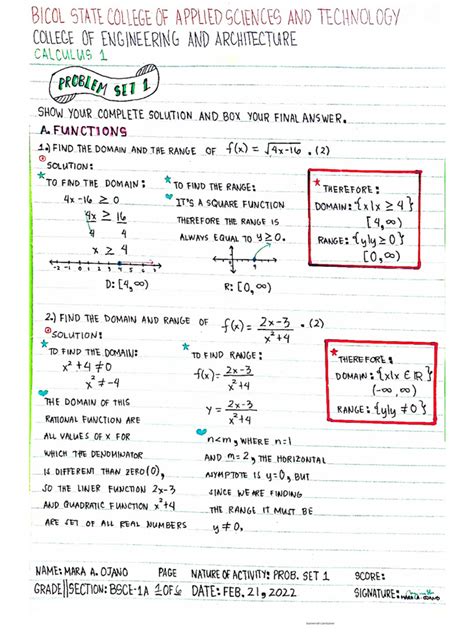 BICOL STATE COLLEGE OF APPLIED SCIENCES AND TECHNOLOGY
COLLEGE OF ENGINEERING AND ARCHITECTURE
CALCULUS 1
PROBLEM SET 1
SHOW YOUR COMPLETE SOLUTION AND BOX YOUR FINAL ANSWER.
A. FUNCTIONS
1.) FIND THE DOMAIN AND THE RANGE OF f(x) = √4x-16 . (2)
SOLUTION:
TO FIND THE DOMAIN:
4x -16 ≥ 0
4x ≥ 16
4 4
x ≥ 4
-2 -1 0 1 2 3 4 5 6 7
D: [4,∞)
TO FIND THE RANGE:
IT'S A SQUARE FUNCTION
THEREFORE THE RANGE IS
ALWAYS EQUAL TO Y ≥ 0.
4
R: [0, ∞)
THEREFORE:
DOMAIN: {x|x ≥ 4}
[4,∞)
RANGE: {y|y ≥ 0}
[0,∞)
2.) FIND THE DOMAIN AND RANGE OF f(x) = 2x-3 / x²+4 . (2)
SOLUTION:
TO FIND THE DOMAIN:
x²+4 ≠ 0
x² ≠ -4
THE DOMAIN OF THIS
RATIONAL FUNCTION ARE
ALL VALUES OF X FOR
WHICH THE DENOMINATOR
IS DIFFERENT THAN ZERO(0),
SO THE LINER FUNCTION 2x-3
AND QUADRATIC FUNCTION x²+4
ARE SET OF ALL REAL NUMBERS
TO FIND RANGE:
f(x) = 2x-3 / x²+4
y = 2x-3 / x²+4
n<m, WHERE n=1
AND m=2, THE HORIZONTAL
ASYMPTOTE IS y=0, BUT
SINCE WE ARE FINDING
THE RANGE IT MUST BE
y ≠ 0.
THEREFORE:
DOMAIN: {x|x ∈ ℝ}
(-∞,∞)
RANGE: {y|y ≠ 0}
NAME: MARA A. OJANO PAGE NATURE OF ACTIVITY: PROB. SET 1 SCORE:
GRADE||SECTION: BSCE-1A 1 OF 6 DATE: FEB. 21, 2022 SIGNATURE: MARA A. OJANO